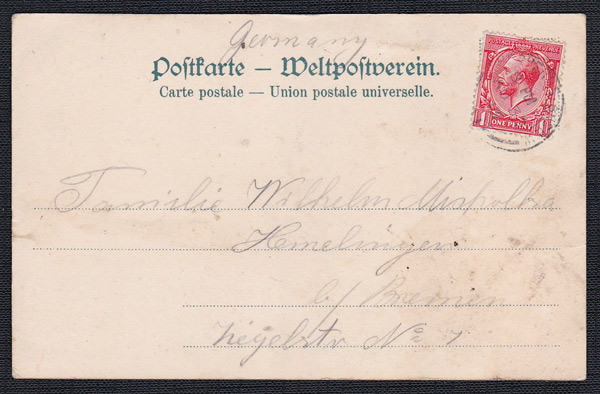 Germany
Postkarte – Weltpostverein.
Carte postale — Union postale universelle.
POSTAGE REVENUE
ONE PENNY
1 1
Familie Wilhelm
Hemelingen
b/ Bremen
No 7